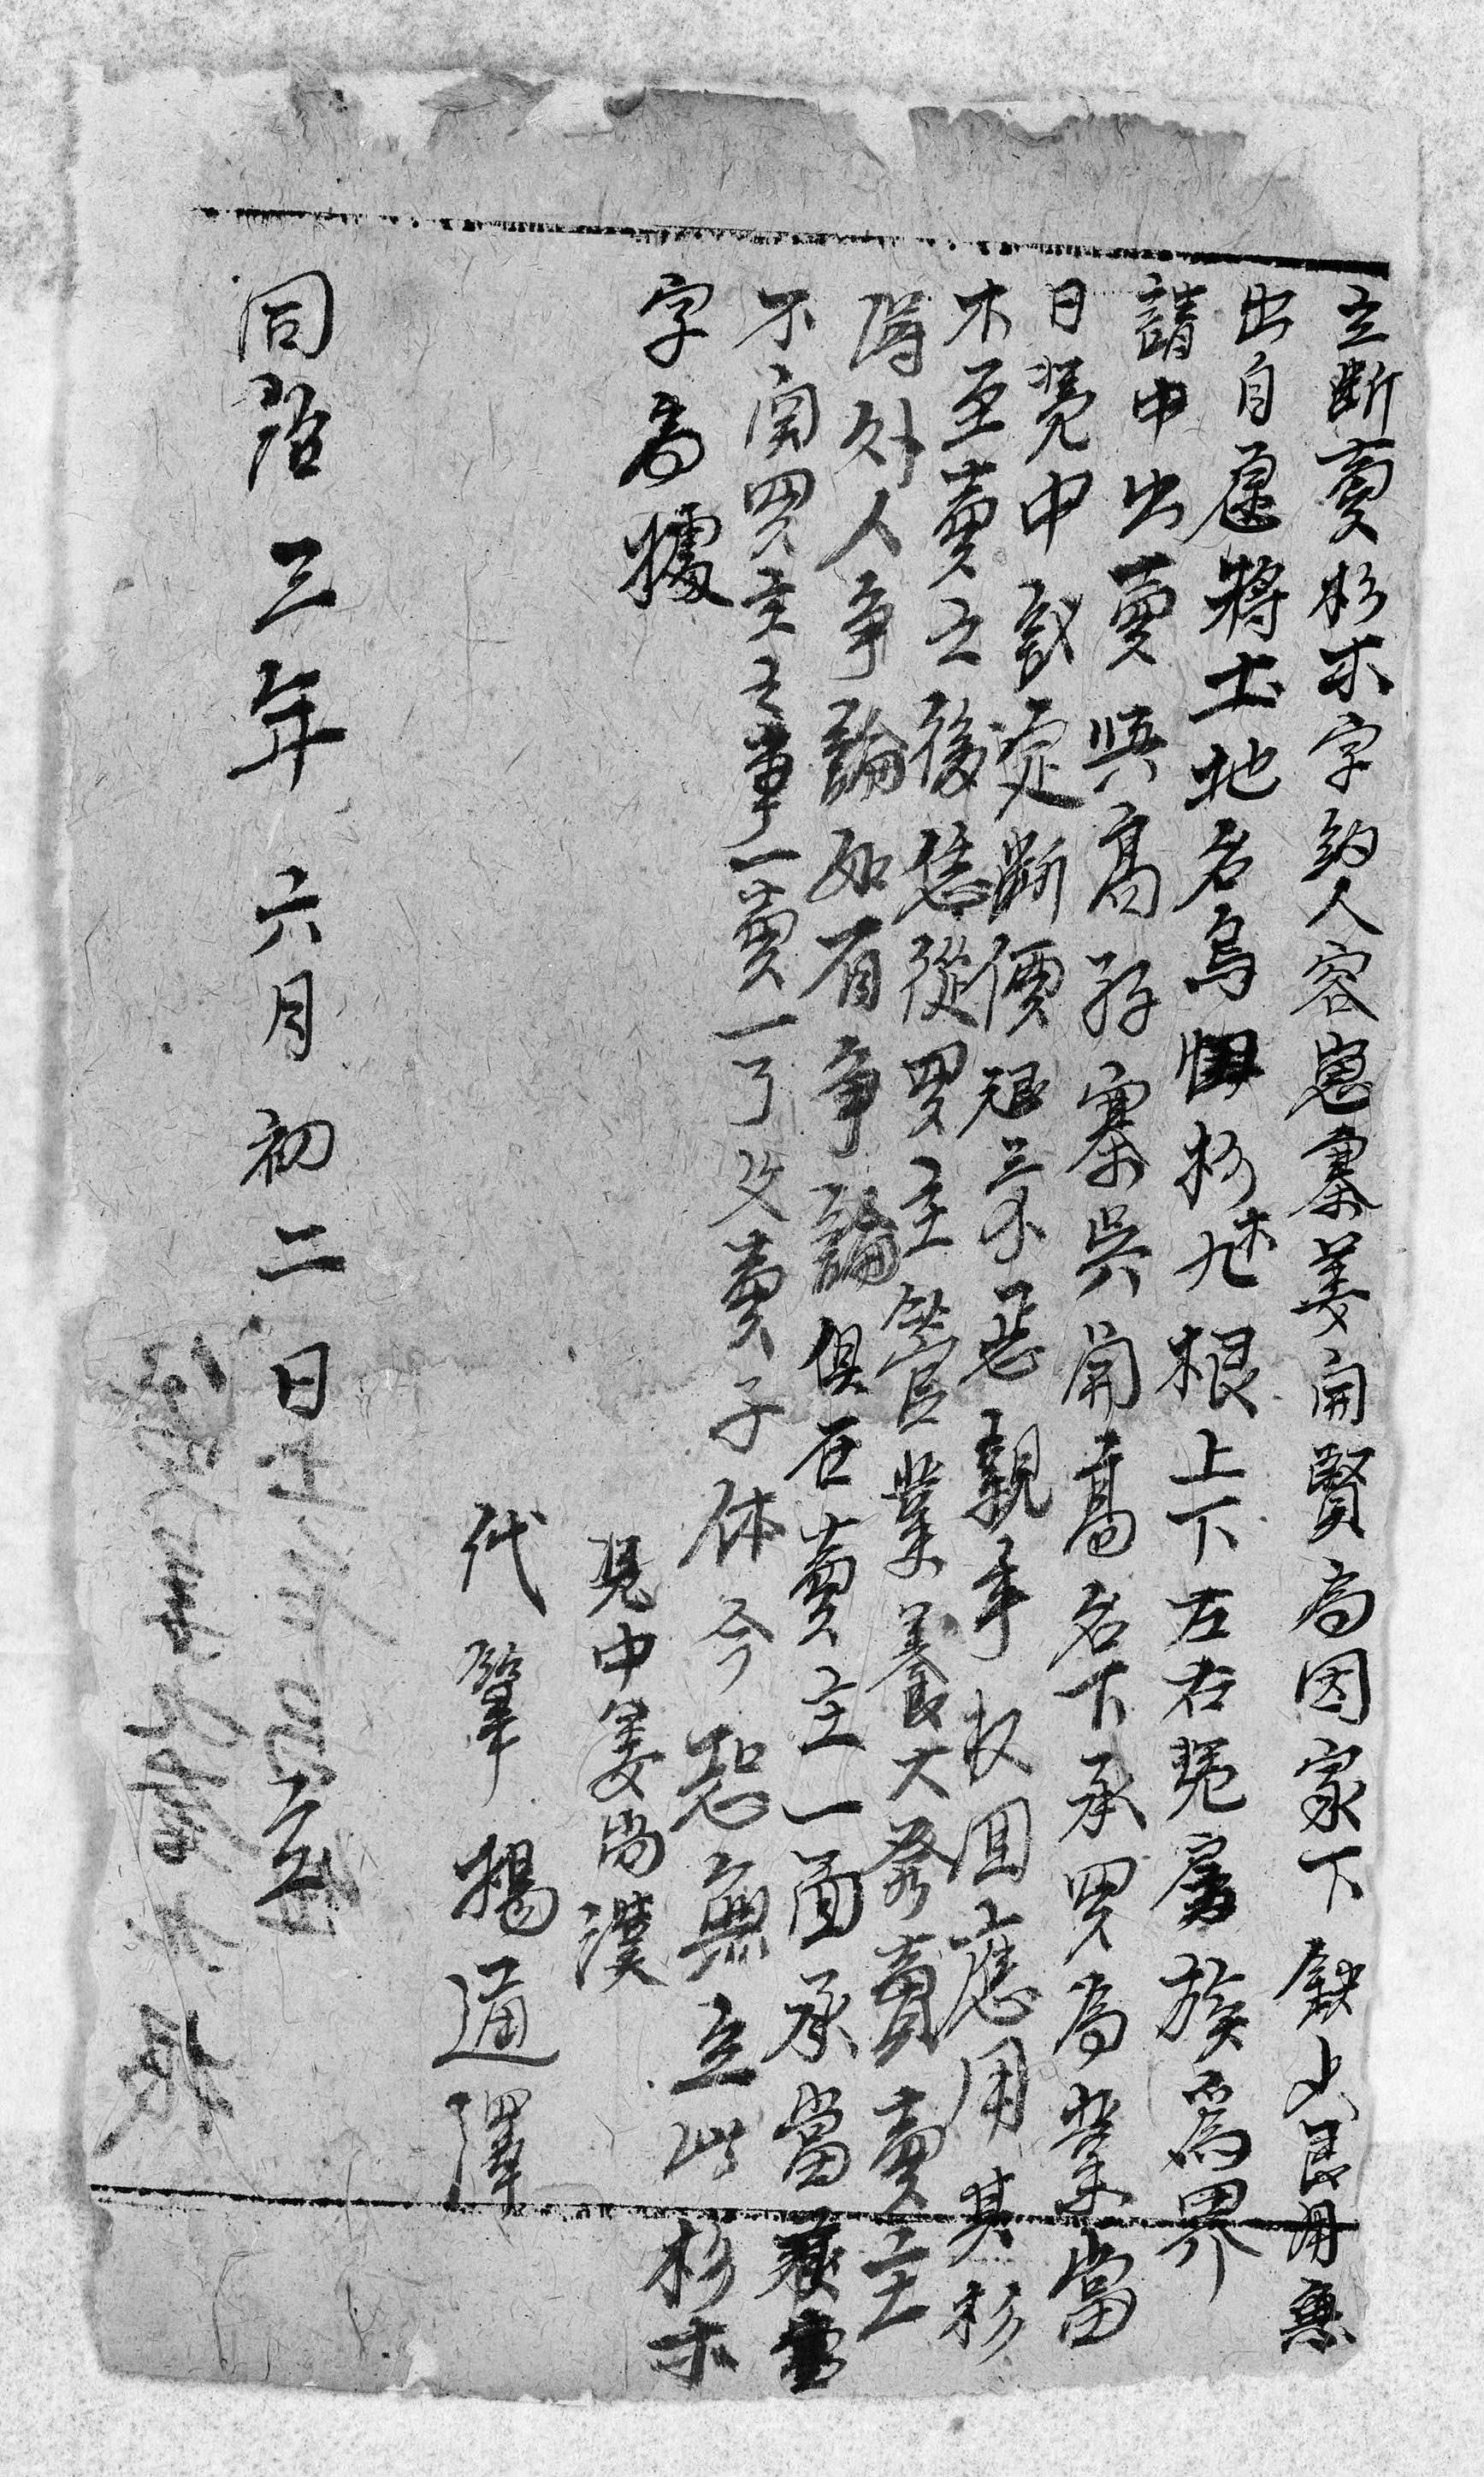 立斷賣杉木字約人容嵬寨姜開賢為因家下缺少艮用無
出自愿將土地名烏 杉木九根上下左右凴房族為界
請中出賣與高孖寨吳開高名下承買為業當
日凴中議定斷價 親手收囬應用其杉
木至賣之後恁從買主管業養大發賣賣主
淂外人争論如有争論俱在賣主一面承當
不関買主之事一賣一了父賣子休今恐無立此杉木
字為據
見中姜尚漢
代筆楊通澤
同治三年六月初二日立